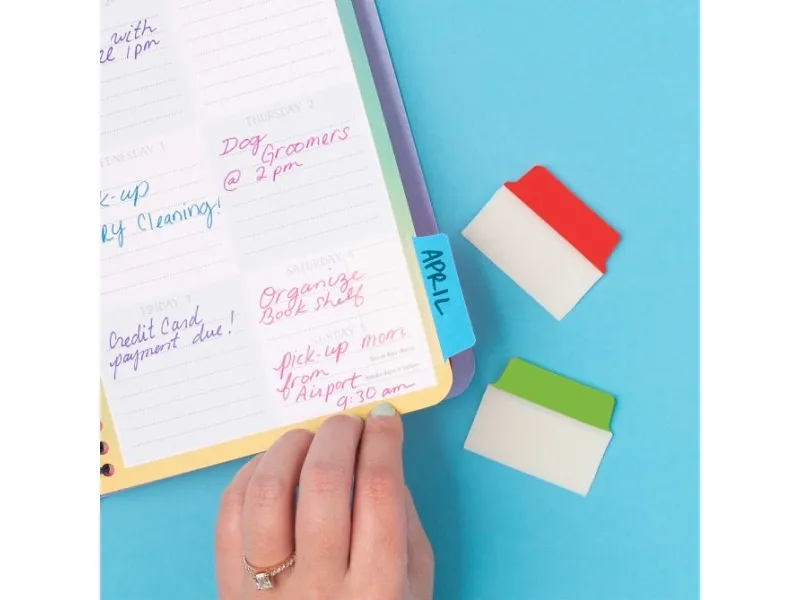 with
1pm
THURSDAY 2
Dog
Groomers
@ 2 pm
WEDNESDAY 1
k-up
RY Cleaning!
SATURDAY 4
Organize
Book shelf
FRIDAY 3
Credit Card
payment due!
SUNDAY 5
pick-up mom
from
Airport
9:30 am
APRIL